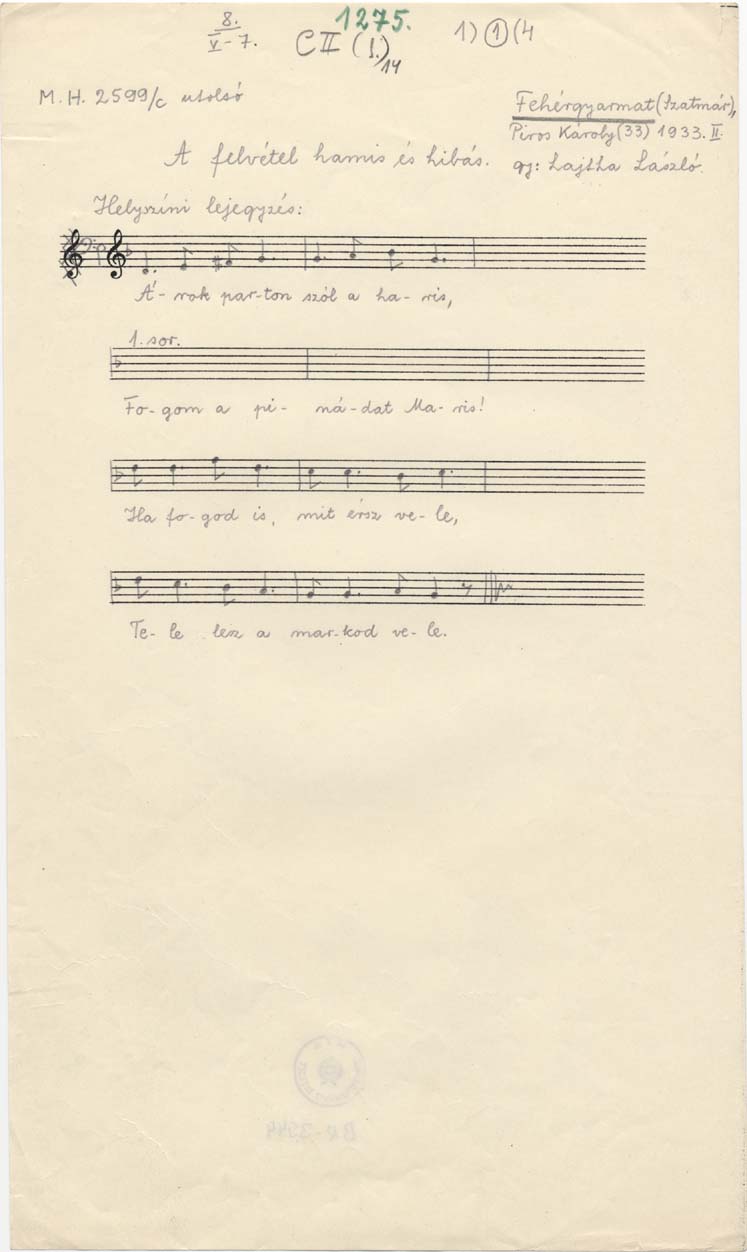 8.
V-7.
1275.
C II (1.)/14
1) 1 (4
M. H. 2599/c utolsó
Fehérgyarmat (Szatmár),
Piros Károly (33) 1933. II.
gy: Lajtha László.
A felvétel hamis és hibás.
Helyszíni lejegyzés:
Á-rok par-ton szól a ha-ris,
1. sor.
Fo-gom a pi-ná-dat Ma-ris!
Ha fo-god is, mit érsz ve-le,
Te-le lesz a mar-kod ve-le.